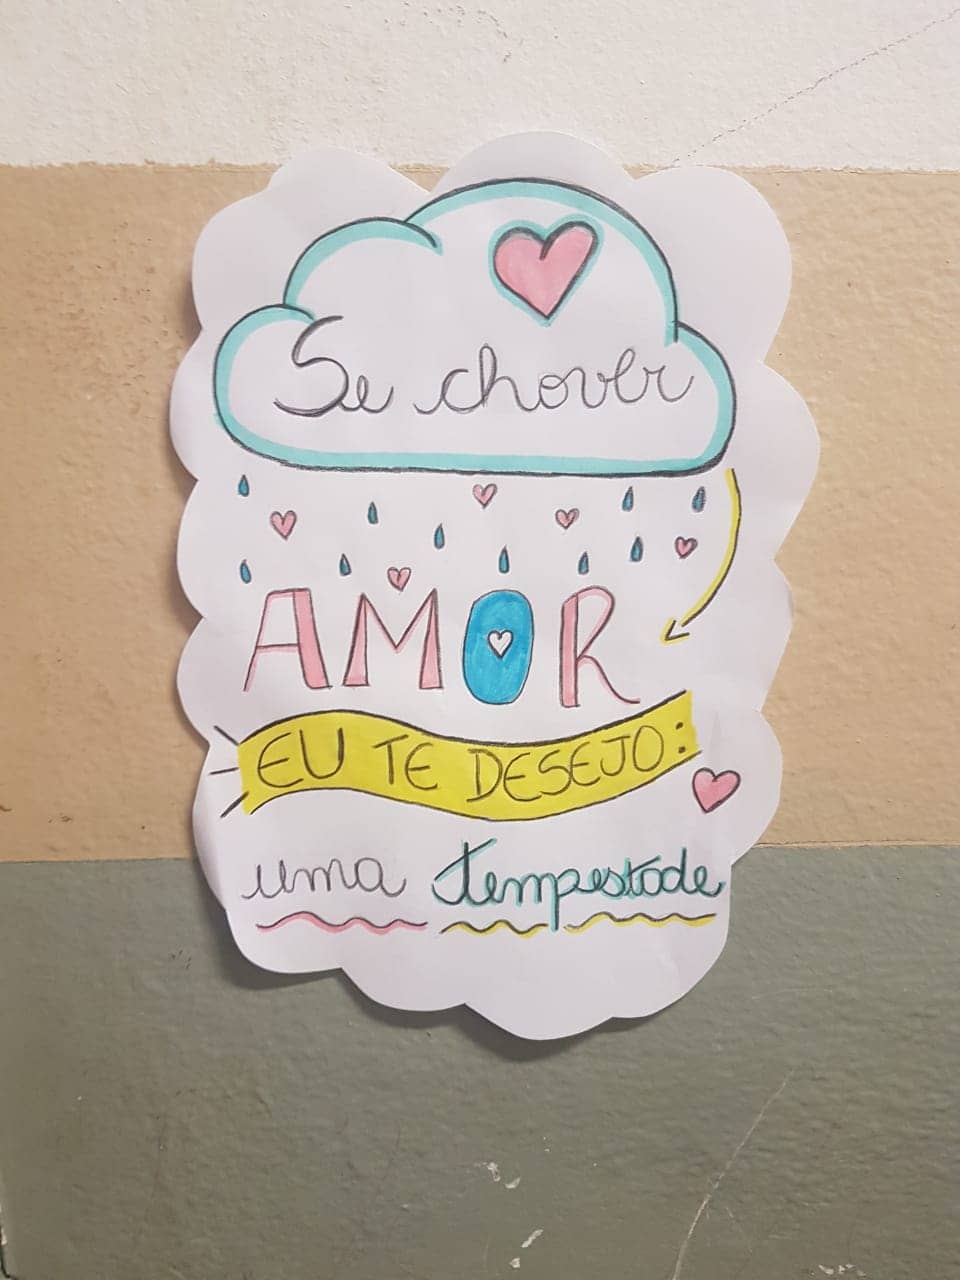 Se chover
AMOR
EU TE DESEJO:
uma tempestade